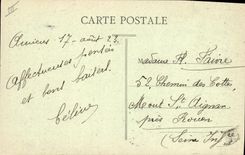 CARTE POSTALE
Amiens 17 août 23
Affectueuses pensées
et bons baisers
Céline
Madame A. Faire
52, Chemin des Cottes
Mont St Aignan
près Rouen
(Seine Infre)